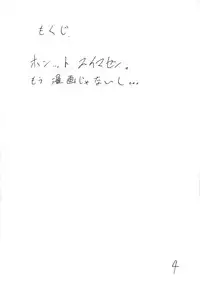 もくじ
ホンット スイマセン。
もう 漫画じゃないし...
4